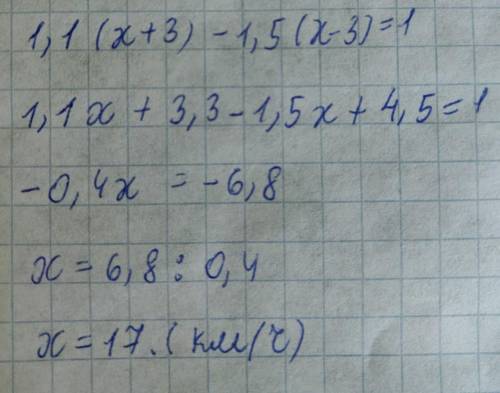 1,1(x+3) -1,5(x-3)=1
1,1x + 3,3-1,5x + 4,5=1
-0,4x = -6,8
x = 6,8 : 0,4
x = 17.(км/ч)